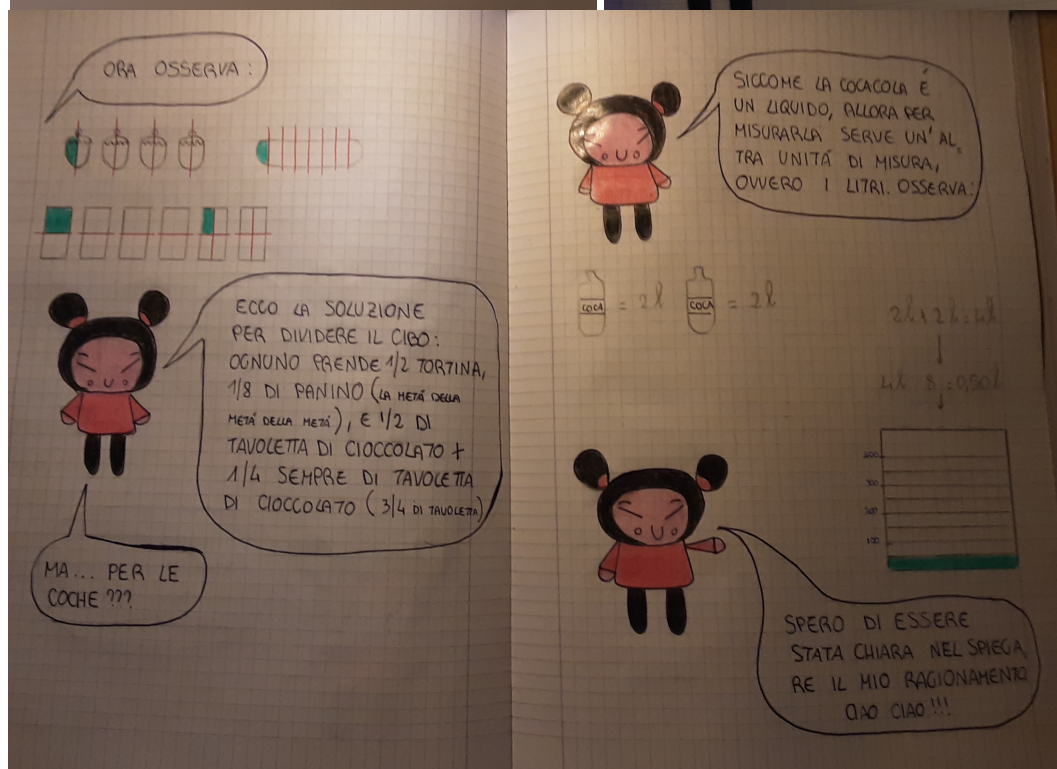 ORA OSSERVA:
ECCO LA SOLUZIONE
PER DIVIDERE IL CIBO:
OGNUNO PRENDE 1/2 TORTINA,
1/8 DI PANINO (LA METÁ DELLA
METÁ DELLA METÁ), E 1/2 DI
TAVOLETTA DI CIOCCOLATO +
1/4 SEMPRE DI TAVOLETTA
DI CIOCCOLATO (3/4 DI TAVOLETTA)
MA... PER LE
COCHE ???
SICCOME LA COCACOLA É
UN LIQUIDO, ALLORA PER
MISURARLA SERVE UN' AL=
TRA UNITÁ DI MISURA,
OVVERO I LITRI. OSSERVA:
COCA = 2 l COCA = 2 l
2l + 2l = 4l
4l : 8 = 0,50l
100
SPERO DI ESSERE
STATA CHIARA NEL SPIEGA
RE IL MIO RAGIONAMENTO
CIAO CIAO!!!